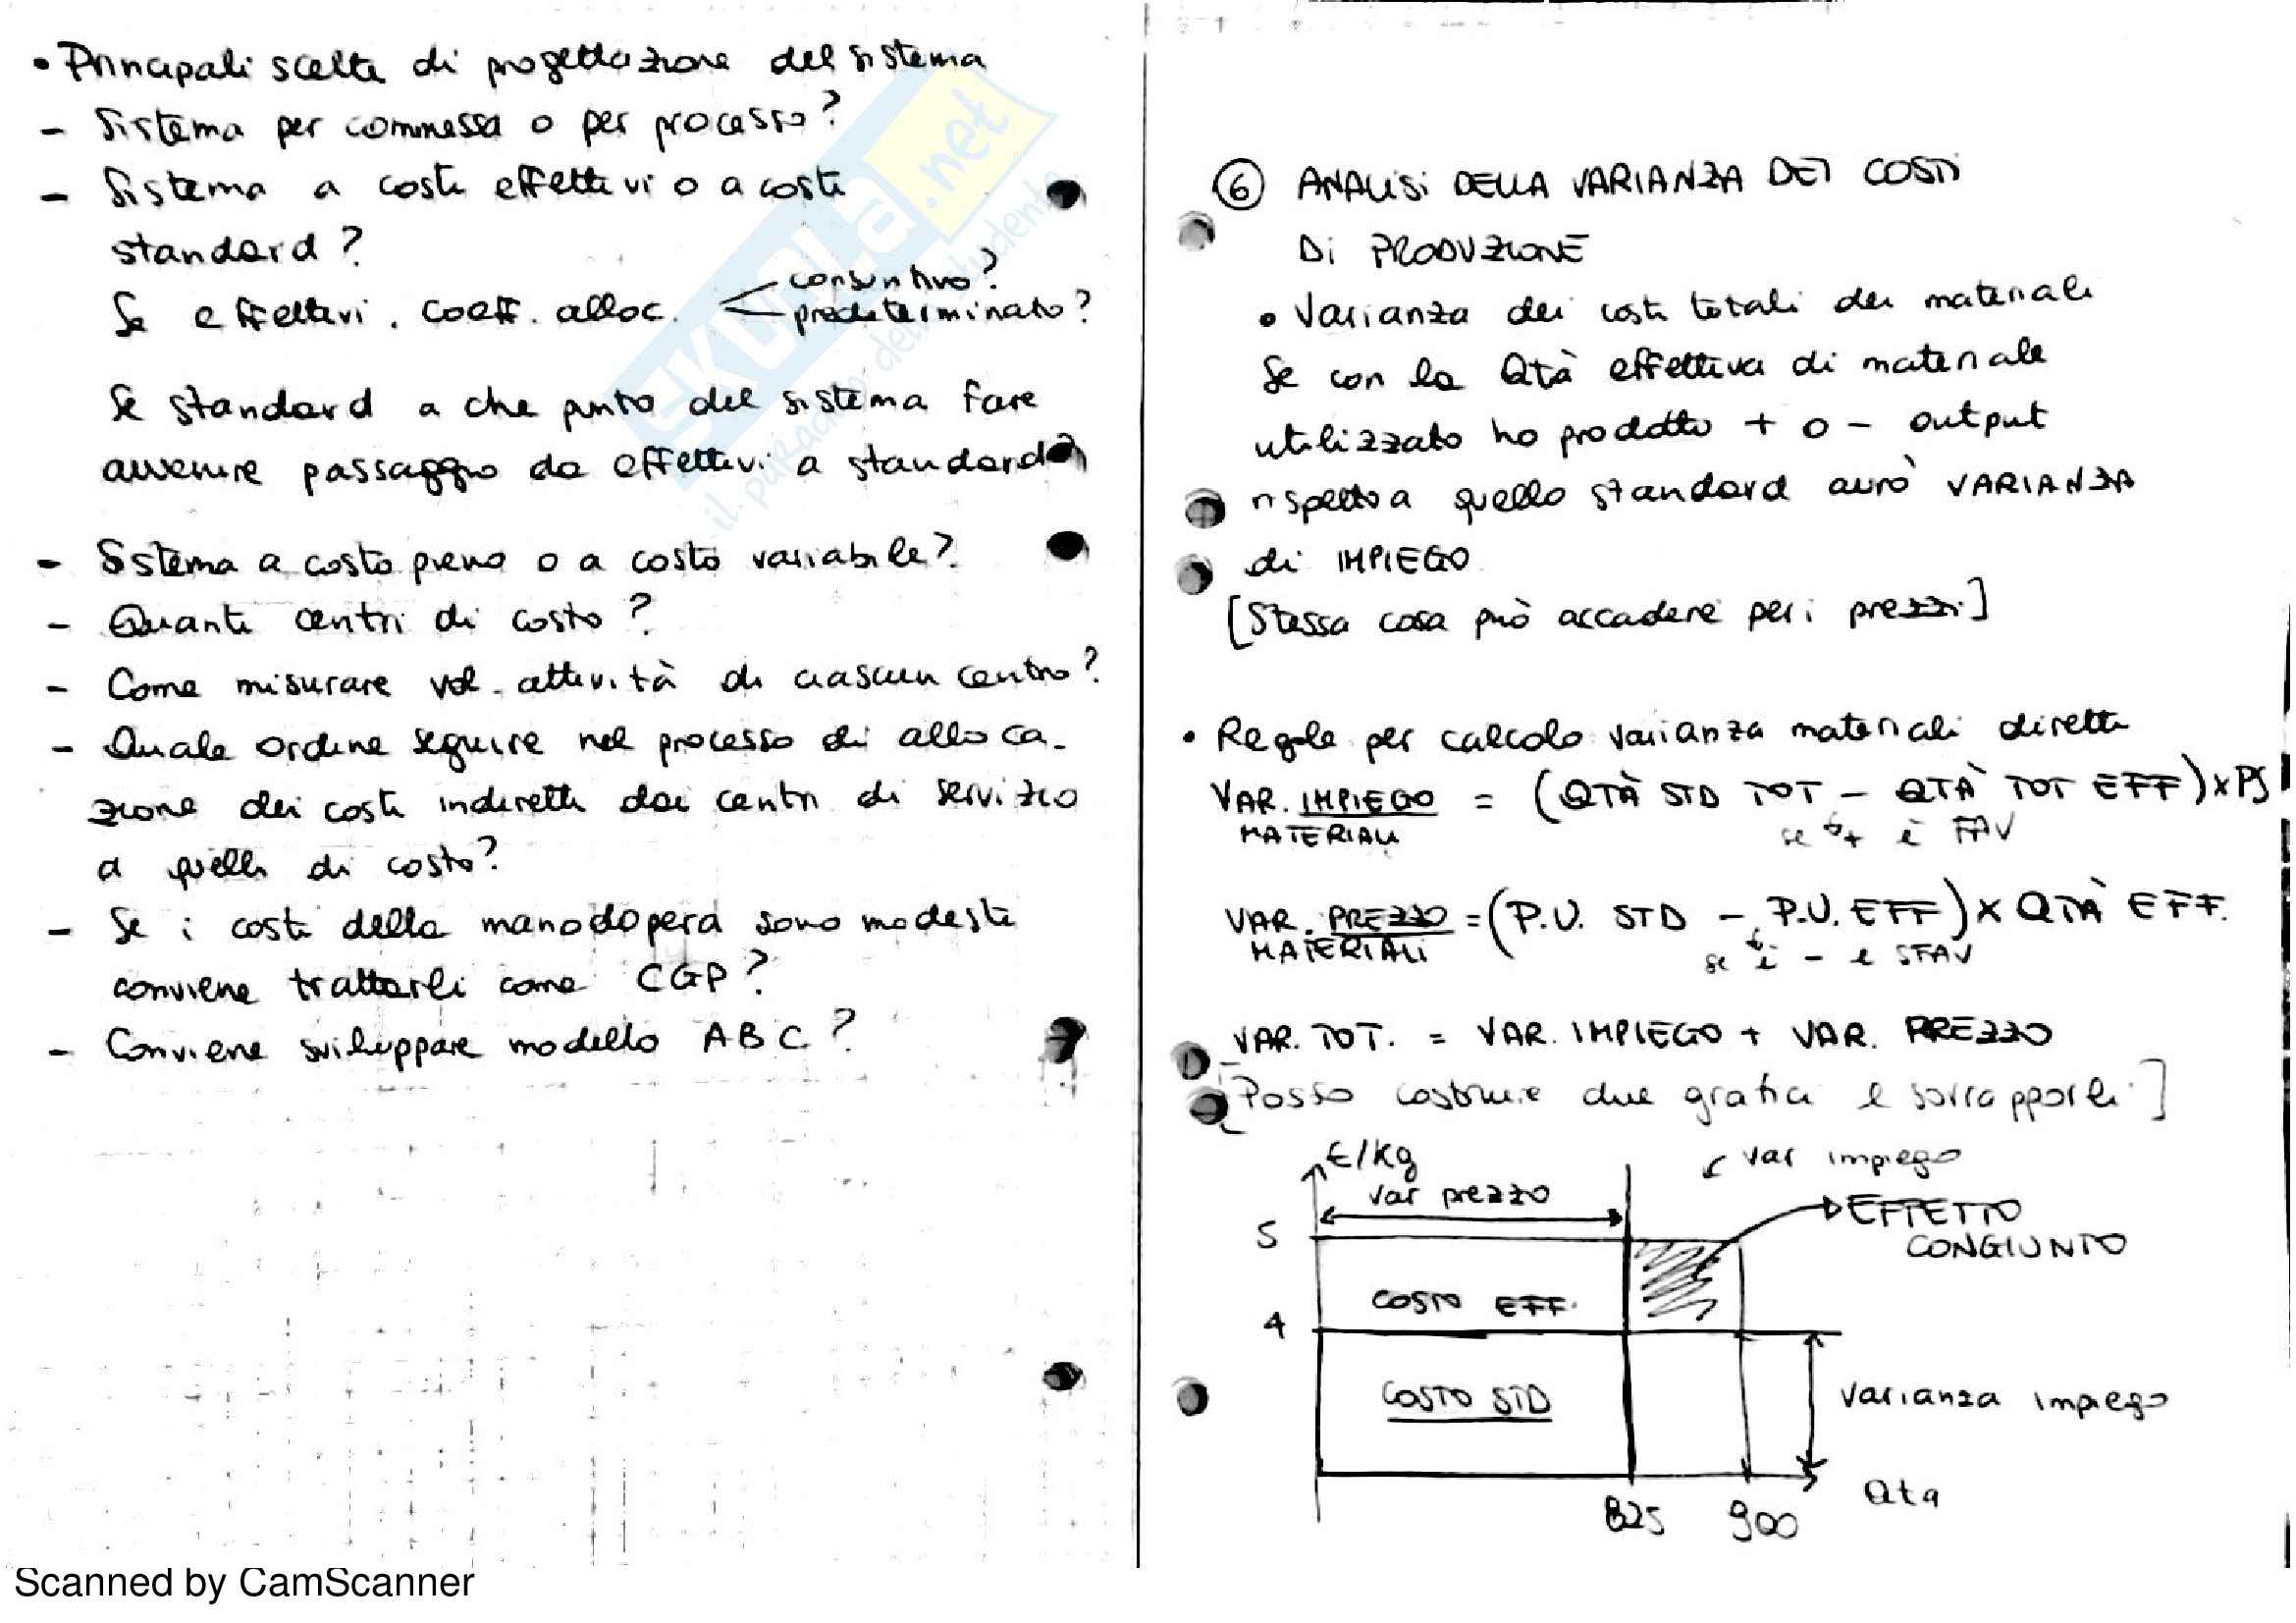 • Principali scelte di progettazione del sistema
- Sistema per commessa o per processo?
- Sistema a costi effettivi o a costi
standard?
Se effettivi. coeff. alloc. consuntivo?
predeterminato?
Se standard a che punto del sistema fare
avvenire passaggio da effettivi a standard?
- Sistema a costo pieno o a costo variabile?
- Quanti centri di costo?
- Come misurare vol. attività di ciascun centro?
- Quale ordine seguire nel processo di alloca-
zione dei costi indiretti dai centri di servizio
a quelli di costo?
- Se i costi della manodopera sono modesti
conviene trattarli come CGP?
- Conviene sviluppare modello ABC?
SKUOLA.net
il paradiso dello studente
⑥ ANALISI DELLA VARIANZA DEI COSTI
DI PRODUZIONE
• Varianza dei costi totali dei materiali
Se con la Qtà effettiva di materiale
utilizzato ho prodotto + o - output
rispetto a quello standard avrò VARIANZA
di IMPIEGO
[Stessa cosa può accadere per i prezzi]
• Regole per calcolo varianza materiali diretti
VAR. IMPIEGO = (QTÀ STD TOT - QTÀ TOT EFF) x PS
MATERIALI se + è FAV
VAR. PREZZO = (P.U. STD - P.U. EFF) x QTÀ EFF.
MATERIALI se è - è SFAV
VAR. TOT. = VAR. IMPIEGO + VAR. PREZZO
[Posso costruire due grafici e sovrapporli]
€/kg
var impiego
var prezzo
EFFETTO
CONGIUNTO
5
COSTO EFF.
4
COSTO STD
Varianza impiego
Qta
825 900
Scanned by CamScanner